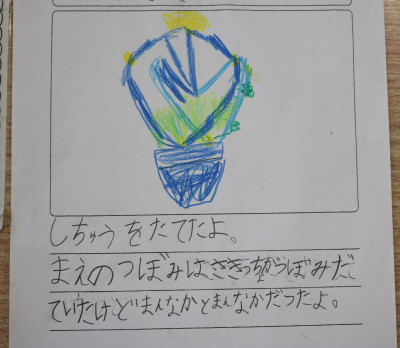 しちゅうをたてたよ。
まえのつぼみはさきっちょがつぼみだ
ていたけどまんなかとまんなかだったよ。